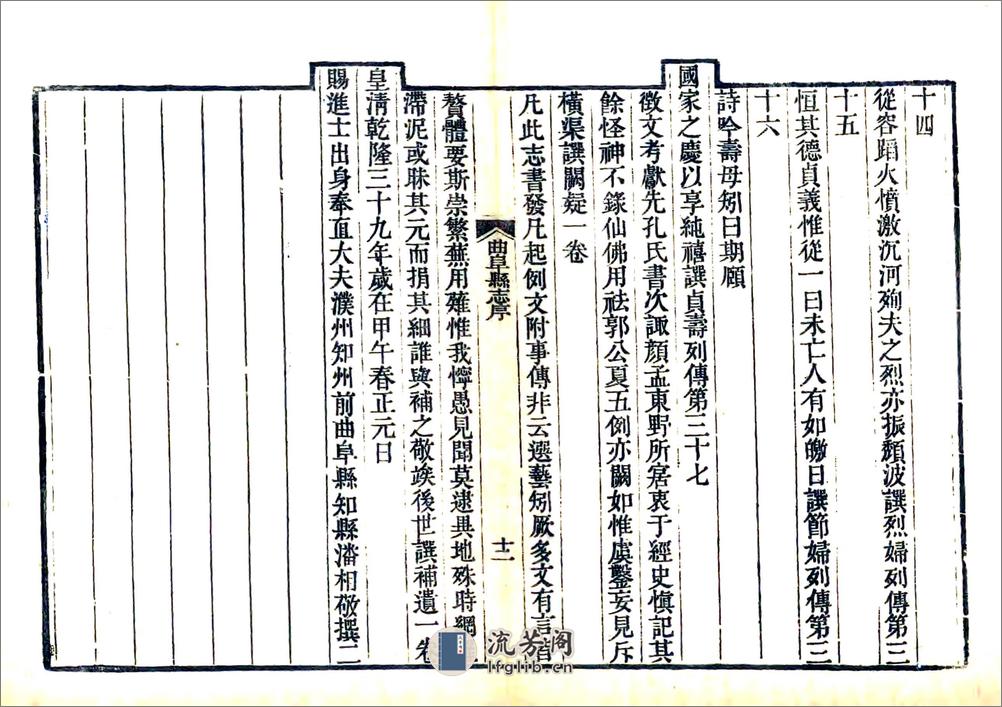 十四
從容蹈火憤激沉河殉夫之烈亦振頹波譔烈婦列傳第三
十五
恒其德貞義惟從一曰未亡人有如皦日譔節婦列傳第三
十六
詩吟壽母矧曰期願
國家之慶以享純禧譔貞壽列傳第三十七
徵文考獻先孔氏書次諏顏孟東野所居衷于經史愼記其
餘怪神不錄仙佛用祛郭公夏五例亦闕如惟虞鑿妄見斥
橫渠譔闕疑一卷
凡此志書發凡起例文附事傳非云選藝矧厥多文有言皆
曲阜縣志序
十二
贅體要斯崇繁蕪用薙惟我懧愚見聞莫逮具地殊時網
滯泥或昧其元而捐其細誰與補之敬竢後世譔補遺一卷
皇淸乾隆三十九年歲在甲午春正元日
賜進士出身奉直大夫濮州知州前曲阜縣知縣潘相敬撰二
流芳閣
lfglib.cn